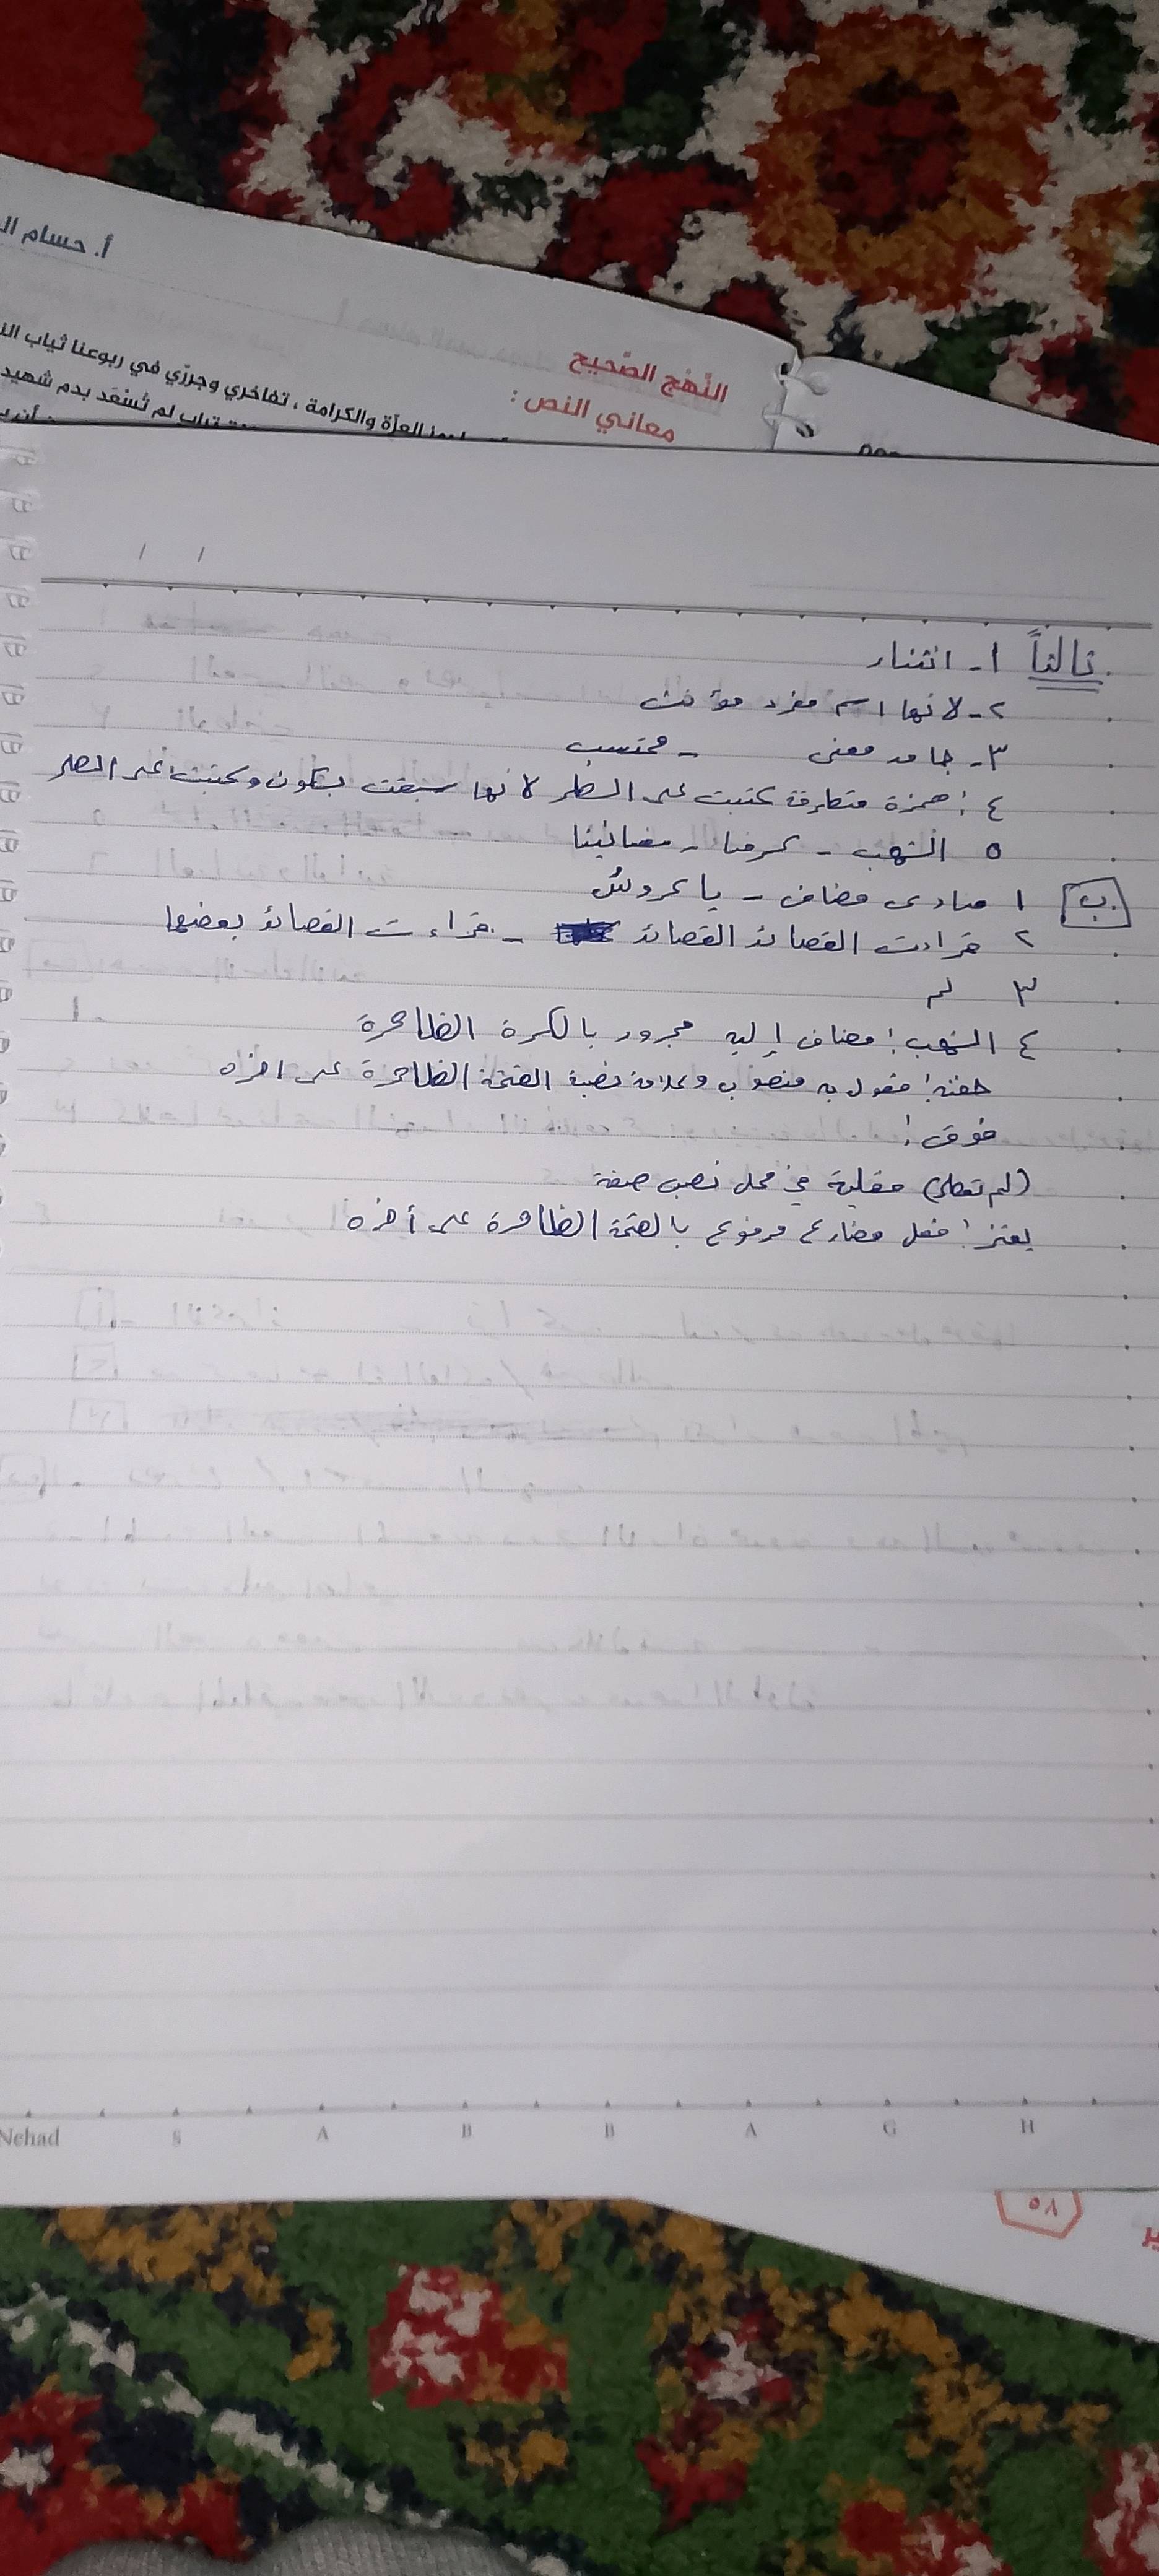 أ. حسام
النَّهْج الصَّحيح
معاني النص :
العزّة والكرامة ، تفاخري وجرّي في ربوعنا ثياب
تراب لم تُسْعَد بدم شهيد
/ /
ثالثاً ١- انتشار
٢- لانها اسم مفرد مؤنث
٣- جامد معنى - محتسب
٤: همزة متطرفة كتبت على السطر لانها سبقت بسكون وكتبت على السطر
٥ الشهب - كرمنا - مغانينا
ب ١ منادى مضاف - يا عروسُ
٢ قرأت القصائد القصائد - قراءت القصائد بعضها
٣ لم
٤ الشهب: مضاف إليه مجرور بالكسرة الظاهرة
حقنه: مفعول به منصوب وعلامة نصبة الفتحة الظاهرة على اخره
فوق:
(لم تعطر) فعلية في محل نصب صفة
يفتر: فعل مضارع مرفوع بالضمة الظاهرة على أخره
Nehad S A B B A G H
٧٥